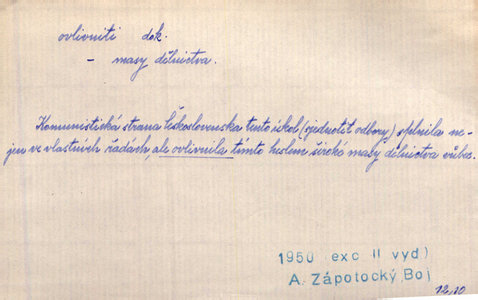 ovlivniti dok.
- masy dělnictva.
Komunistická strana Československa tento úkol (sjednotit odbory) splnila ne-
jen ve vlastních řadách, ale ovlivnila tímto heslem široké masy dělnictva vůbec.
1950 exc II vyd)
A. Zápotocký, Boj